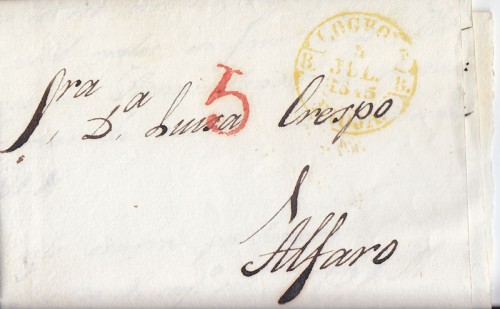 LOGROÑ
R. B.
5
JUL.
1845
5
Sra. Da. Luisa Crespo
Alfaro